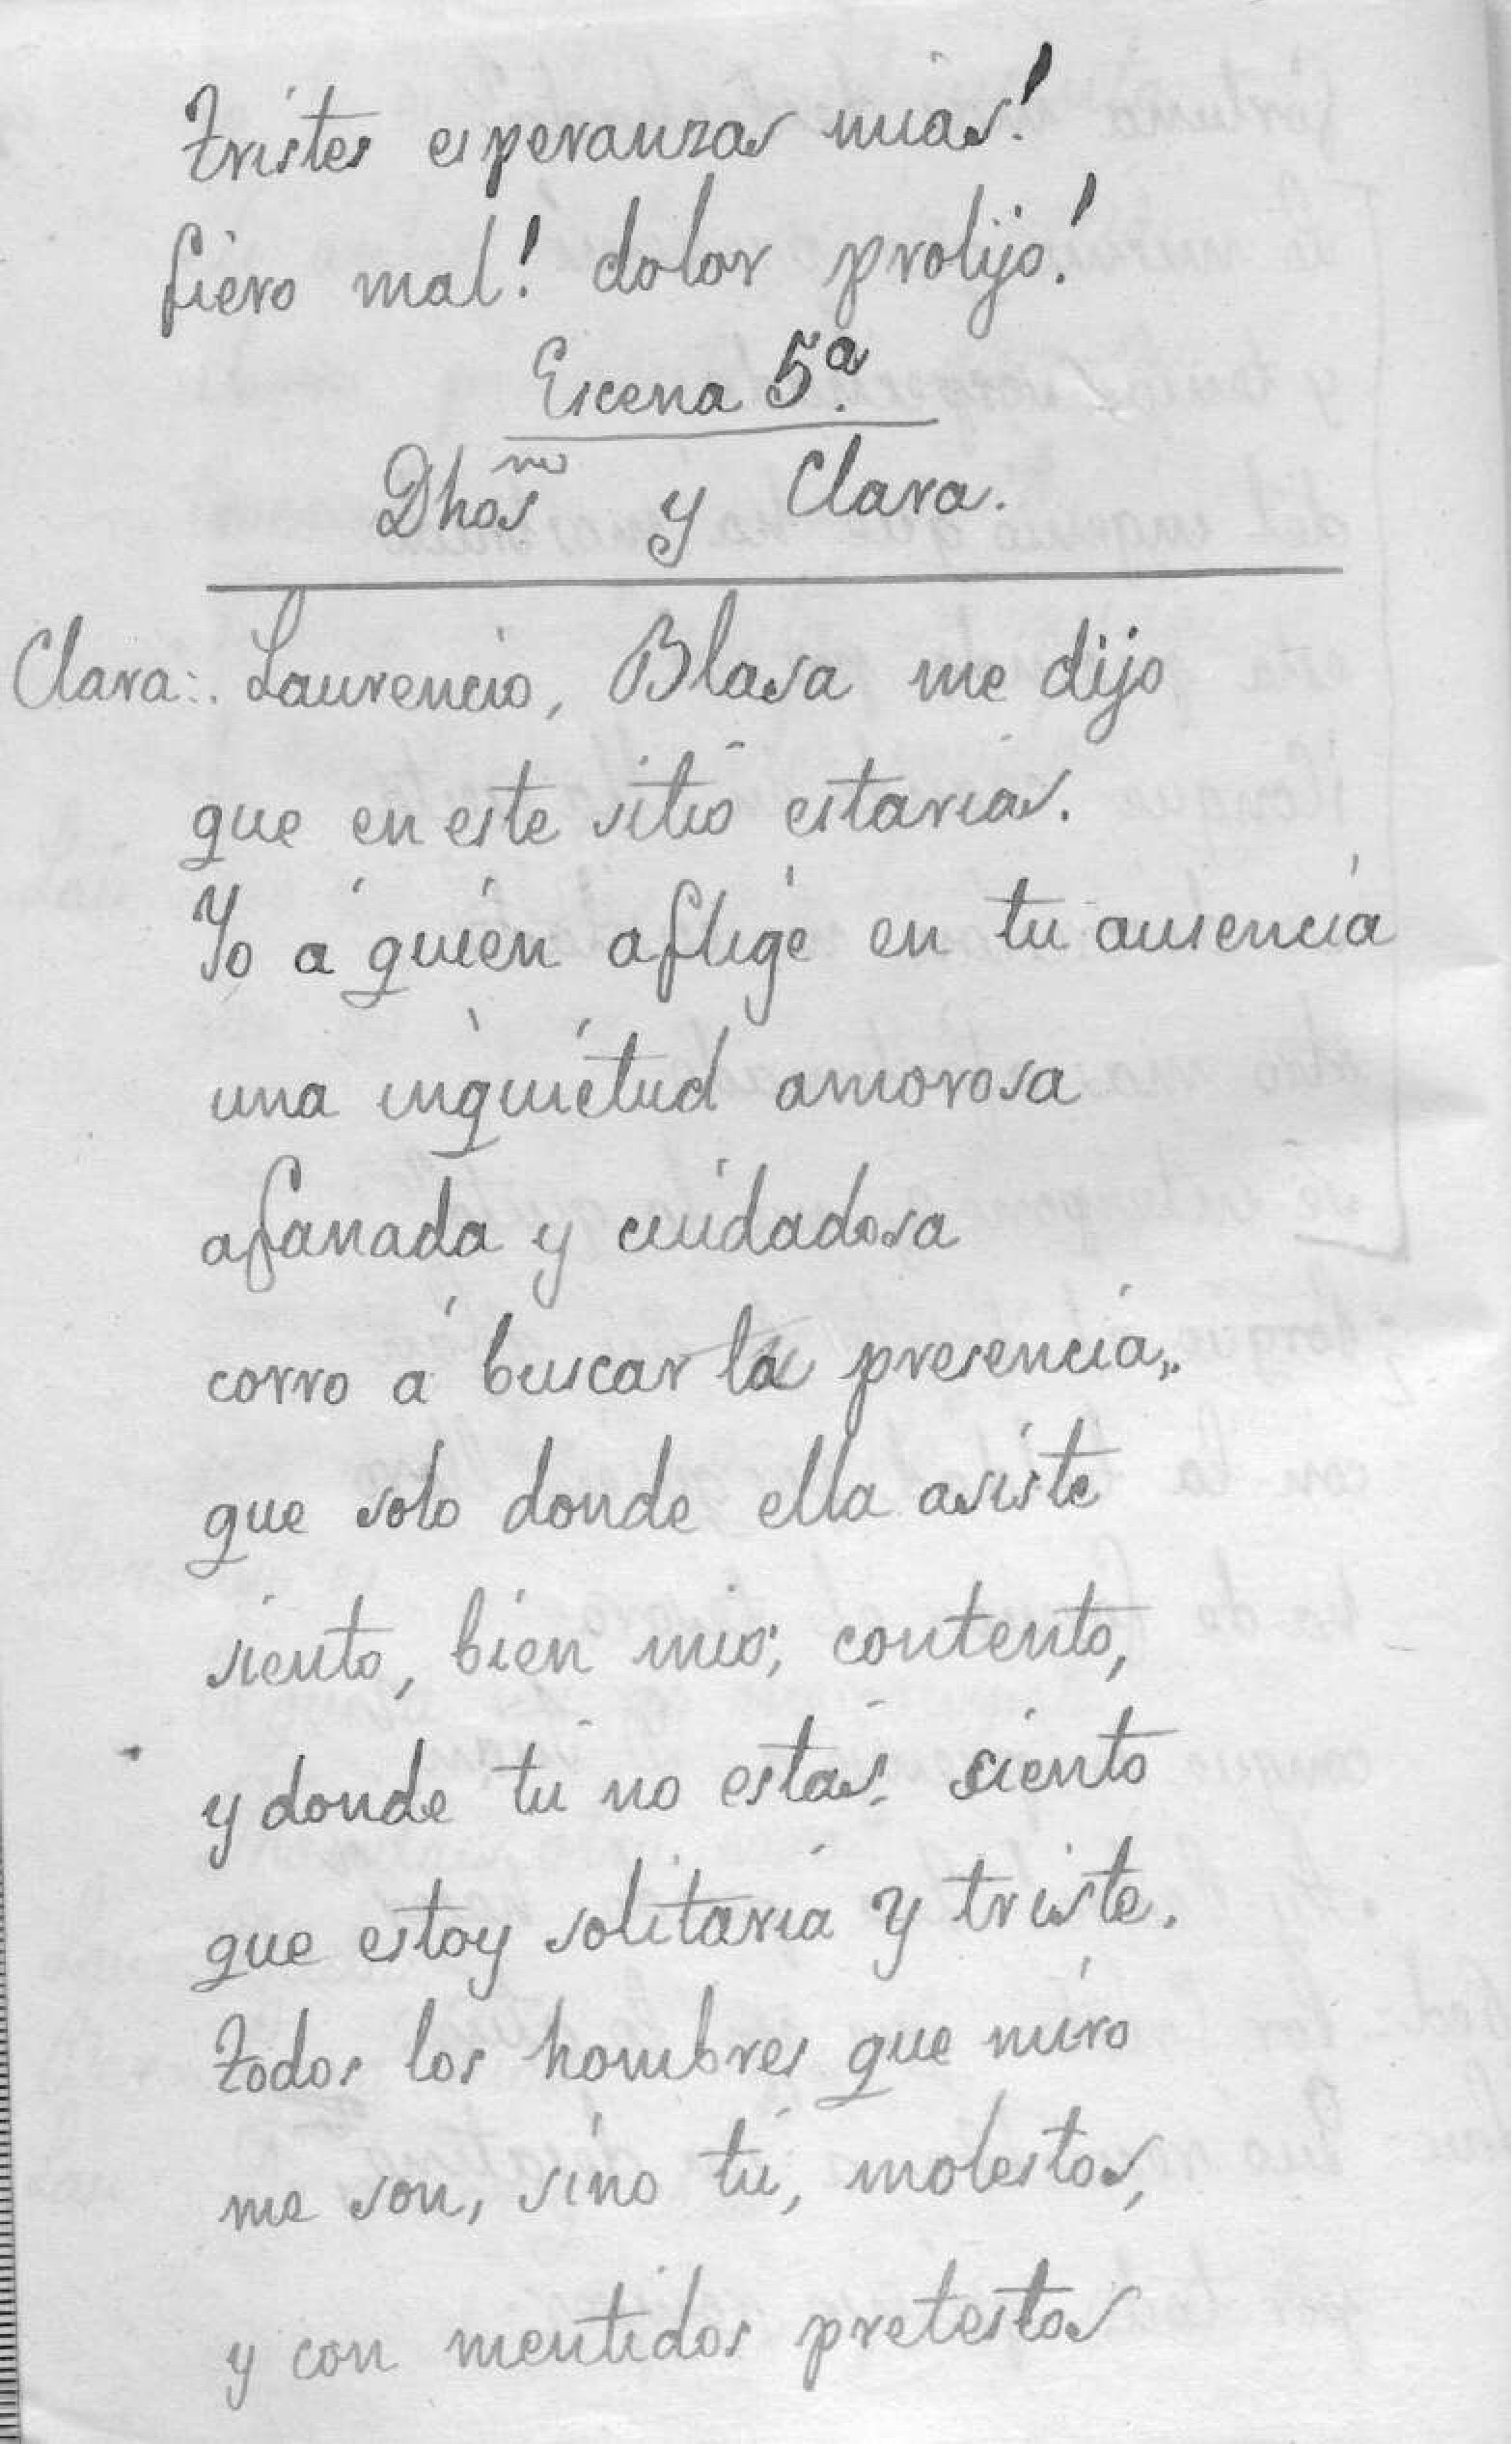 Tristes esperanzas mias!
fiero mal! dolor prolijo!
Escena 5ª.
Dhos y Clara.
Clara: Laurencio, Blasa me dijo
que en este sitio estarias.
Yo á quien aflige en tu ausencia
una inquietud amorosa
afanada y cuidadosa
corro á buscar la presencia,
que solo donde ella asiste
siento, bien mio, contento,
y donde tu no estas siento
que estoy solitaria y triste.
Todos los hombres que miro
me son, sino tu, molestos,
y con mentidos pretestos